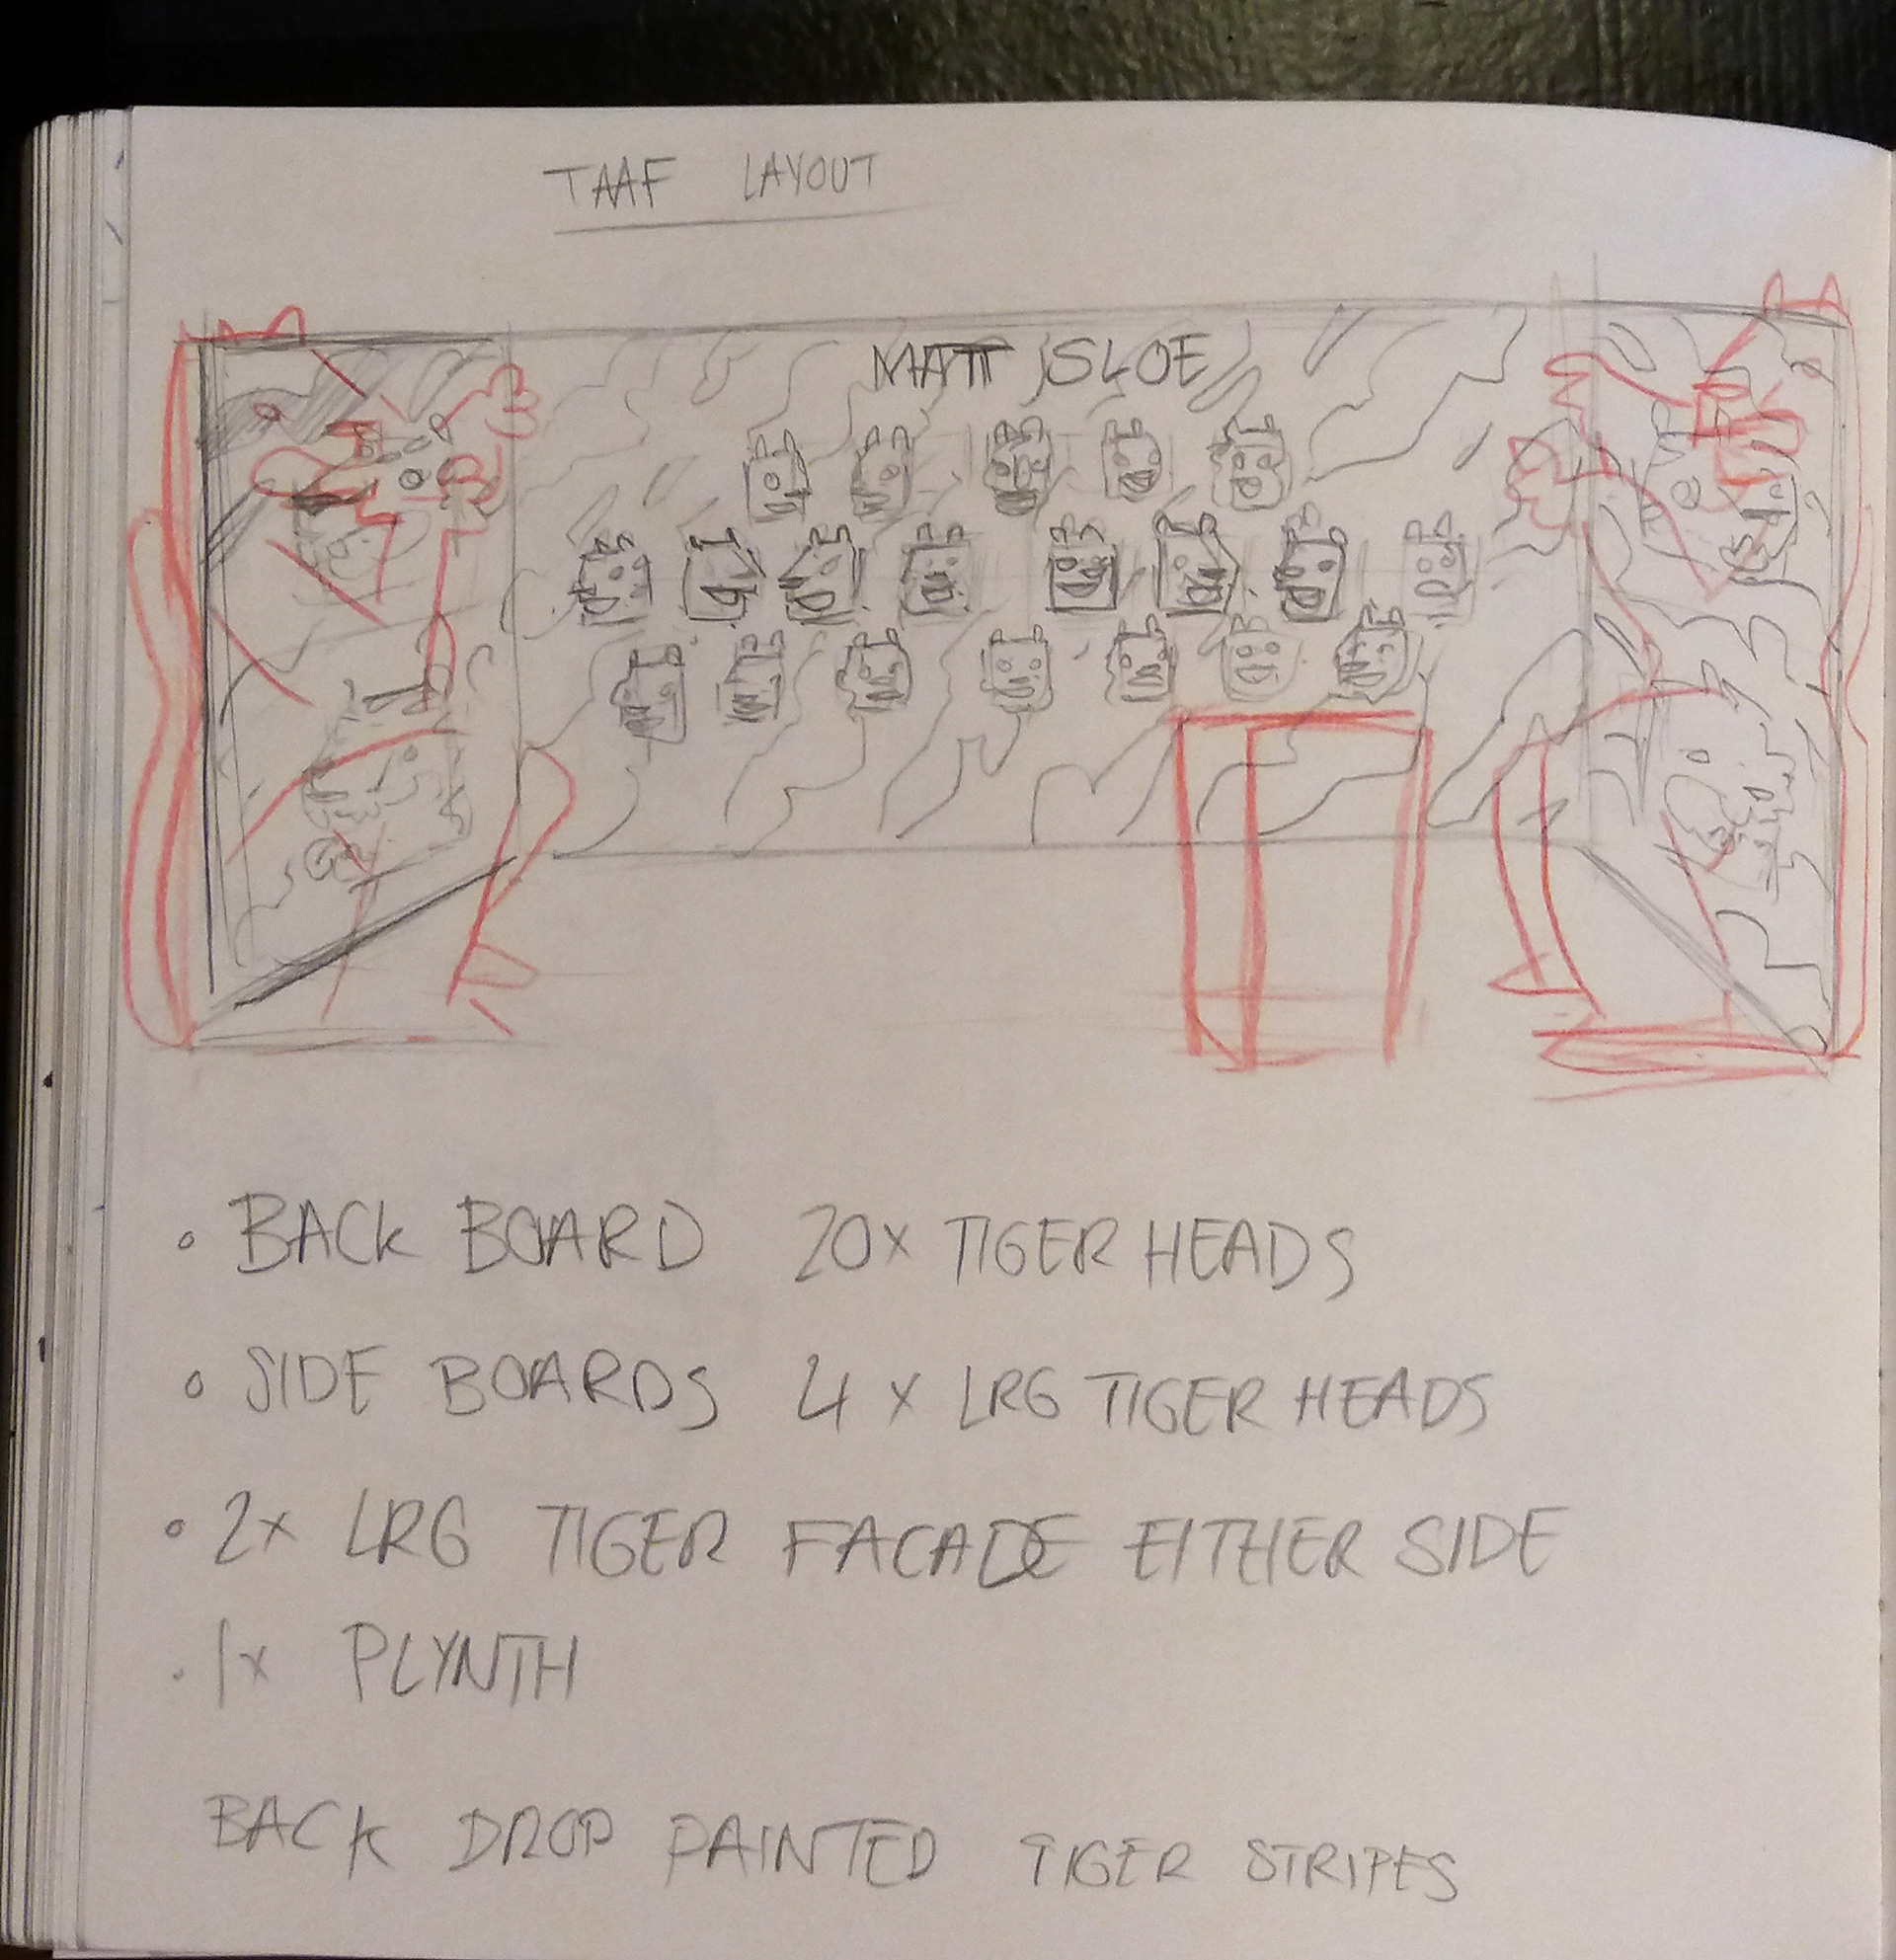 TAAF LAYOUT
MATT SLOE
• BACK BOARD 20x TIGER HEADS
• SIDE BOARDS 4 x LRG TIGER HEADS
• 2x LRG TIGER FACADE EITHER SIDE
• 1x PLYNTH
BACK DROP PAINTED TIGER STRIPES